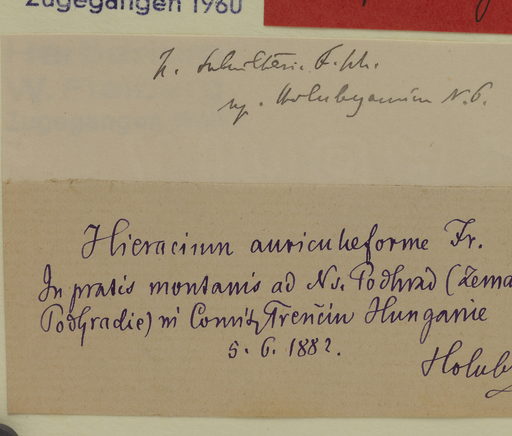 Zugegangen 1960
H. Schultesii F. Sch.
ssp. Holubyanum N. P.
Hieracium auriculaeforme Fr.
In pratis montanis ad Ns. Podhrad (Zema
Podhradie) in Comit. Trenčin Hungariae
5. 6. 1882.
Holuby